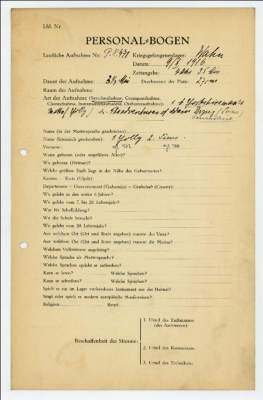 Lfd. Nr.
PERSONAL-BOGEN
Laufende Aufnahme Nr. P.K. Kriegsgefangenenlager: Wahn
Datum: 9/ 1916
Zeitangabe: 4 Uhr 35 Min
Dauer der Aufnahme: 3½ Min Durchmesser der Platte: 27 cm
Raum der Aufnahme:
Art der Aufnahme (Sprechaufnahme, Gesangsaufnahme,
Choraufnahme, Instrumentenaufnahme, Orchesteraufnahme):
Name (in der Muttersprache geschrieben):
Name (lateinisch geschrieben):
Vorname:
Wann geboren (oder ungefähres Alter)?
Wo geboren (Heimat)?
Welche größere Stadt liegt in der Nähe des Geburtsortes?
Kanton – Kreis (Ujedz):
Departement – Gouvernement (Gubernija) – Grafschaft (County):
Wo gelebt in den ersten 6 Jahren?
Wo gelebt vom 7. bis 20. Lebensjahr?
Was für Schulbildung?
Wo die Schule besucht?
Wo gelebt vom 20. Lebensjahr?
Aus welchem Ort (Ort und Kreis angeben) stammt der Vater?
Aus welchem Ort (Ort und Kreis angeben) stammt die Mutter?
Welchem Volksstamm angehörig?
Welche Sprache als Muttersprache?
Welche Sprachen spricht er außerdem?
Kann er lesen? Welche Sprachen?
Kann er schreiben? Welche Sprachen?
Spielt er ein im Lager vorhandenes Instrument aus der Heimat?
Singt oder spielt er modern europäische Musikweisen?
Religion: Beruf:
Beschaffenheit der Stimme:
1. Urteil des Fachmannes
(des Assistenten):
2. Urteil des Kommissars:
3. Urteil des Technikers: